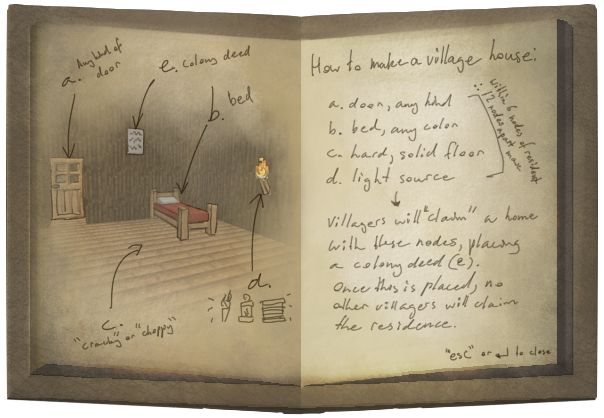 Any kind of
a. door
e. colony deed
b. bed
c.
"cracky" or "choppy"
d.
How to make a village house:
a. door, any kind
b. bed, any color
c. hard, solid floor
d. light source
within 6 nodes of resident
∴ 12 nodes apart max
Villagers will "claim" a home
with these nodes, placing
a colony deed (e).
Once this is placed, no
other villagers will claim
the residence.
"esc" or ↵ to close